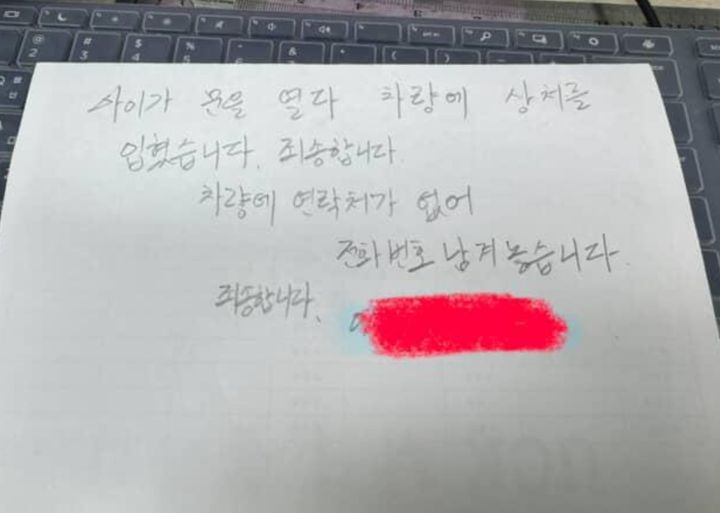 아이가 문을 열다 차량에 상처를
입혔습니다. 죄송합니다.
차량에 연락처가 없어
전화번호 남겨놓습니다.
죄송합니다.